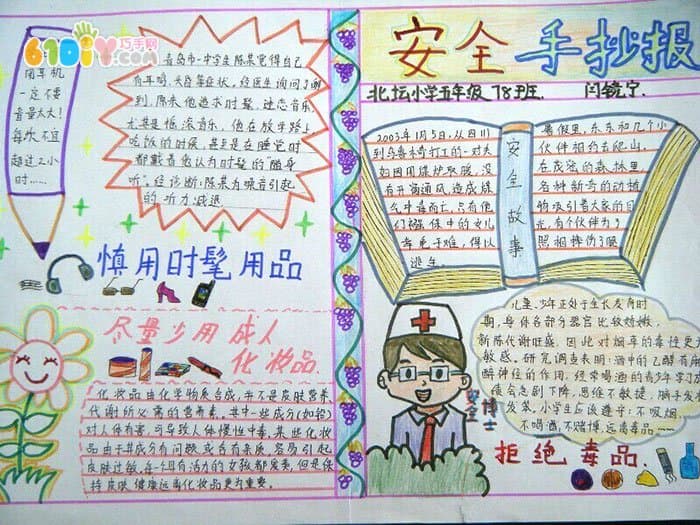 61DIY巧手网
.com
用耳机
一定不要
音量太大!
每次不宜
超过2小
时……
青岛市一中学生陈某觉得自己
有耳鸣、头昏等症状。经医生询问了解
到,陈某他追求时髦,迷恋音乐,
尤其是摇滚音乐,他在放学路上,
吃饭的时候,甚至是在睡觉时
都戴着他认为时髦的“随身
听”。经诊断:陈某为噪音引起
的听力减退
慎用时髦用品
尽量少用成人
化妆品
化妆品由化学物质合成,并不是皮肤营养
代谢所必需的营养素,其中一些成分(如铅)
对人体有害,可导致人体慢性中毒,某些化妆
品由于其成分有问题或含有杂质,容易引起
皮肤过敏,每个具有活力的女孩都爱美,但是保
持皮肤健康远离化妆品更为重要。
安全手抄报
北坛小学五年级78班 闫镜宁
2003年1月5日,从四川
到乌鲁木齐打工的一对夫
妇因用煤炉取暖,没
有开窗通风,造成煤
气中毒而亡,只有他
们襁褓中的女儿
幸免于难,得以
逃生。
安全故事
暑假里,东东和几个小
伙伴相约去爬山,
在茂密的森林里
各种新奇的动植
物吸引着大家的目
光,有个伙伴为了
照相摔伤了腿
儿童、少年正处于生长发育时
期,身体各部分器官比较娇嫩,
新陈代谢旺盛,因此对烟草的毒性更为
敏感。研究调查表明:酒中的乙醇有麻
醉神经的作用,经常喝酒的青少年学习成
绩会急剧下降,思维不敏捷,脑子发
发笨。小学生应该遵守:不吸烟、
不喝酒、不赌博、远离毒品……
安全博士
拒绝毒品